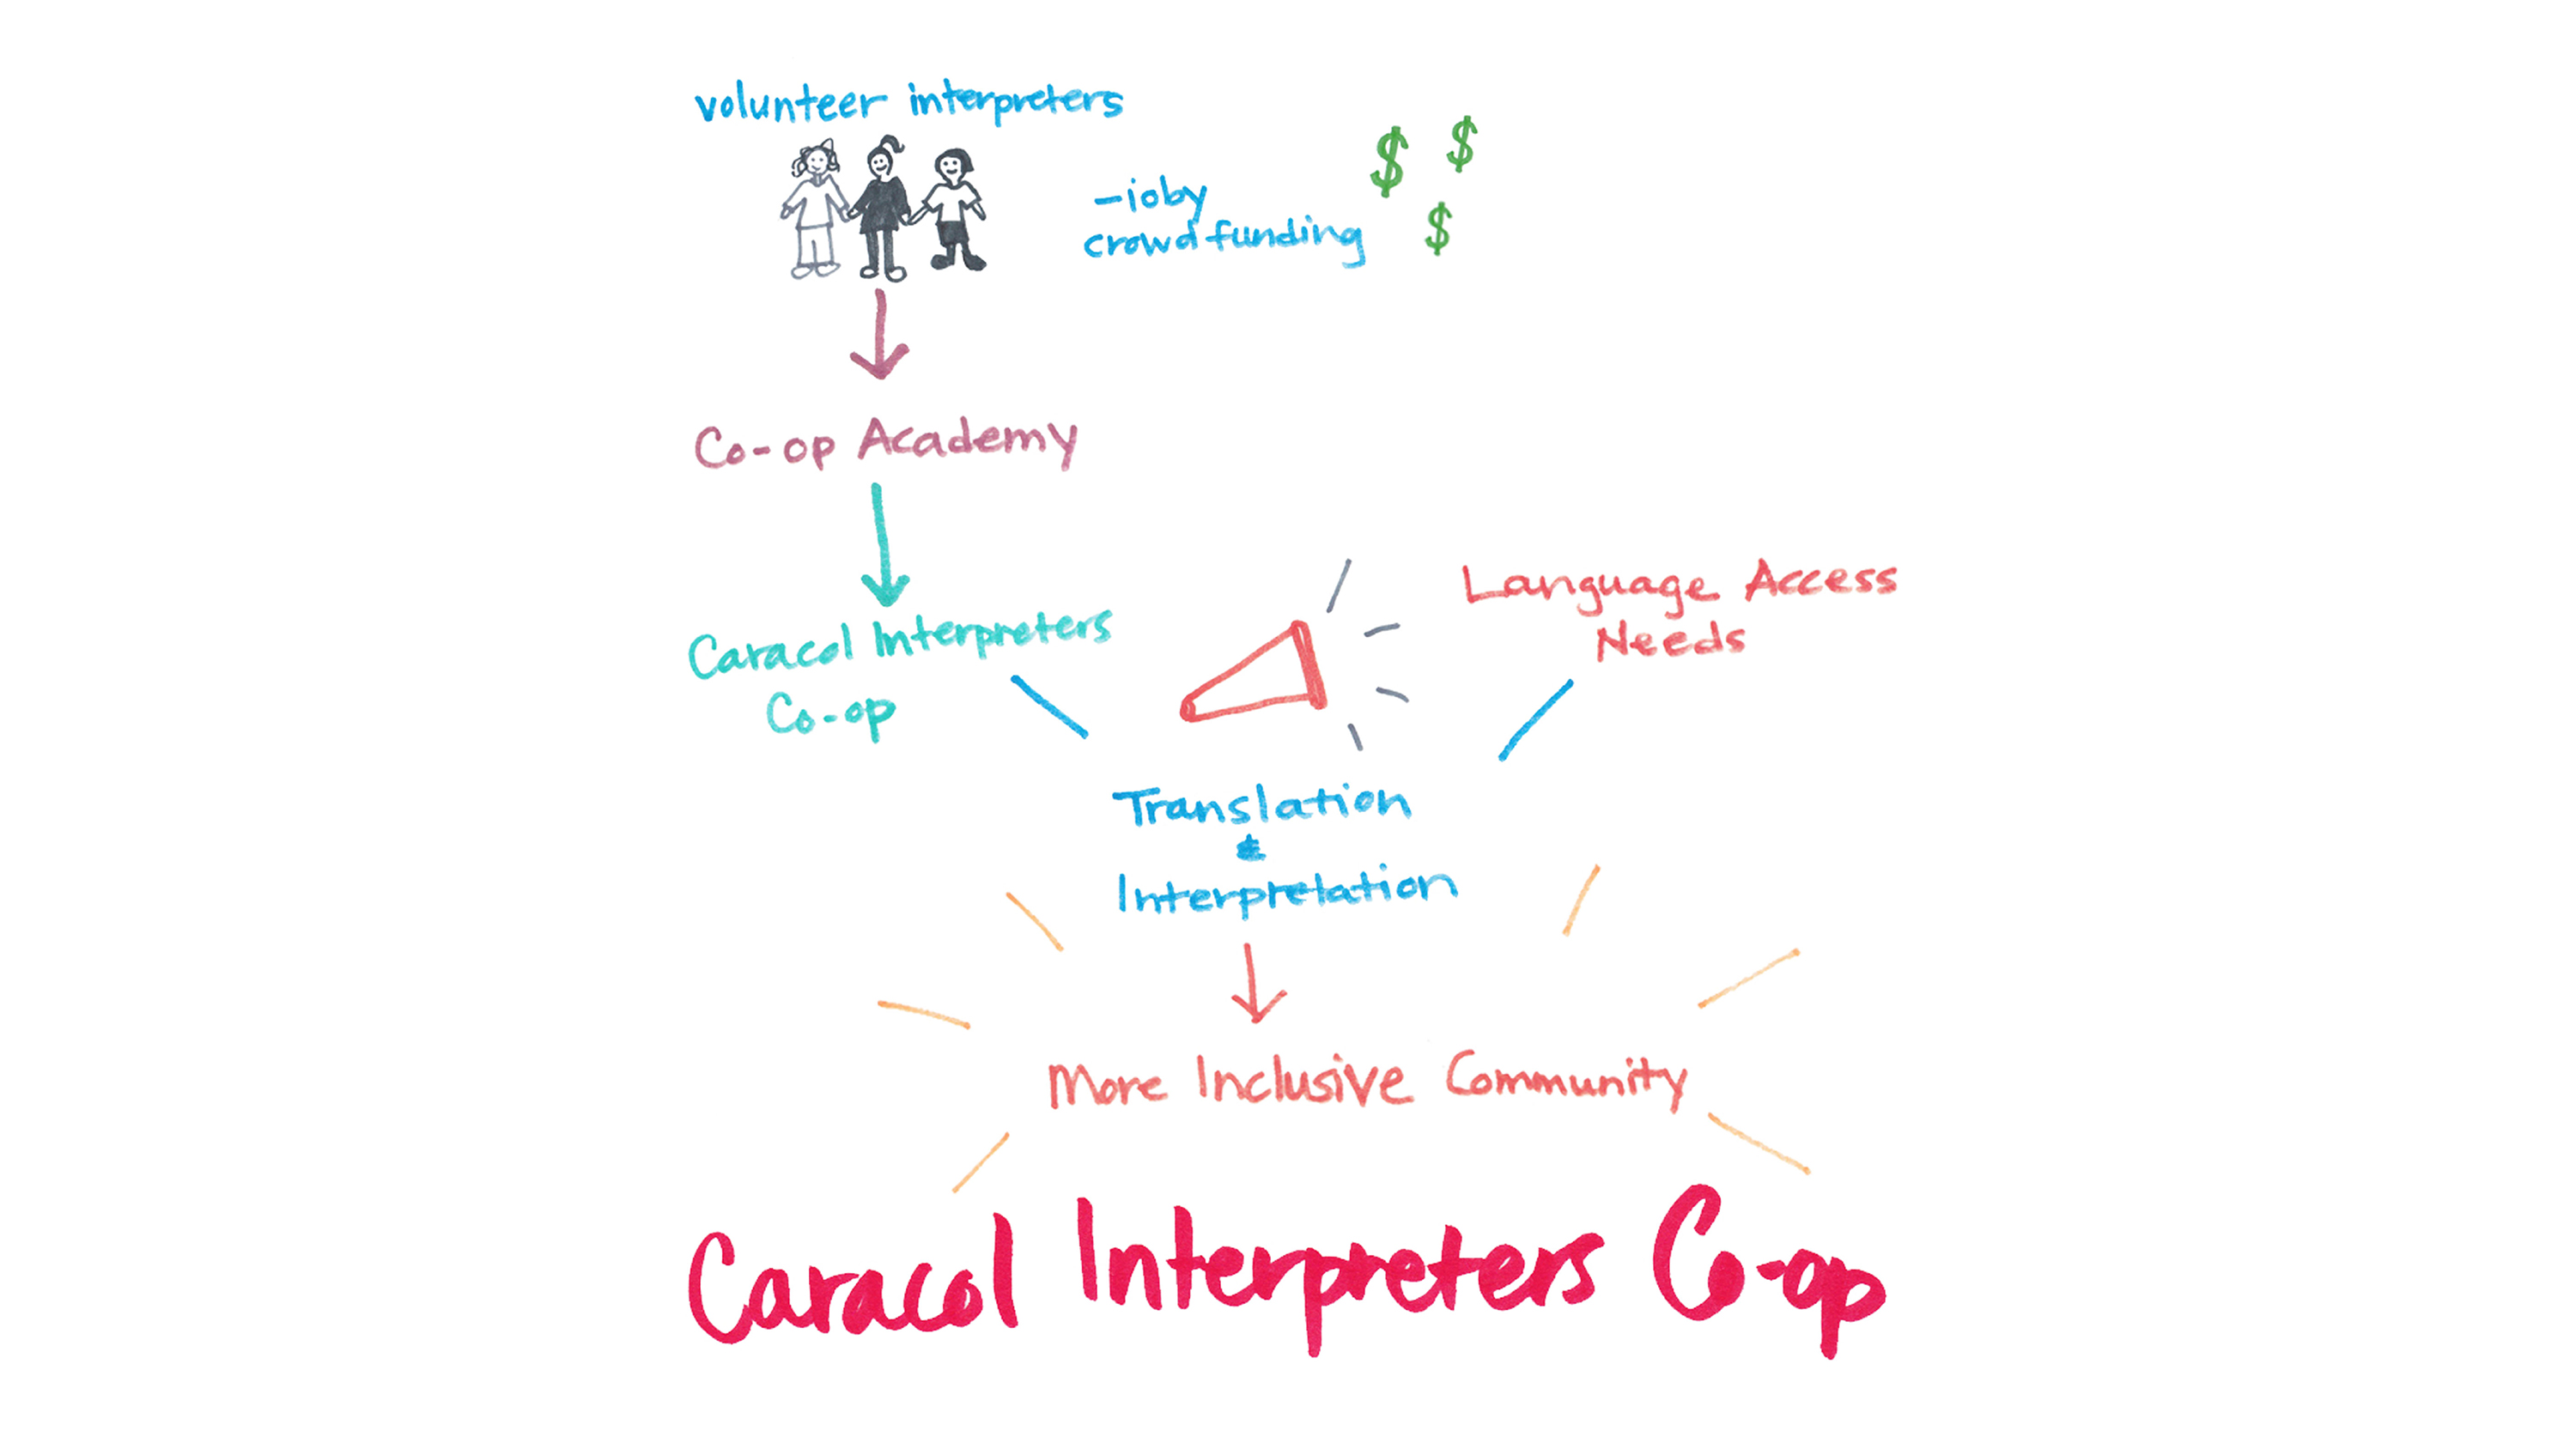 volunteer interpreters
$ $
-ioby
crowdfunding $
Co-op Academy
Caracol Interpreters
Co-op
Language Access
Needs
Translation
&
Interpretation
More Inclusive Community
Caracol Interpreters Co-op